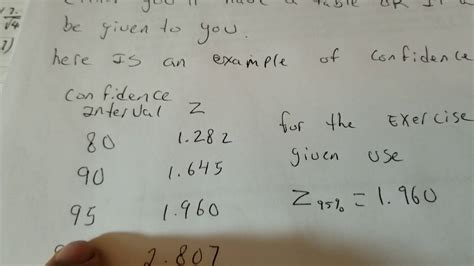 either you'll have a table or it'll
be given to you.
here Is an example of confidence
Confidence
interval Z
80 1.282
90 1.645
95 1.960
2.807
for the Exercise
given use
Z 95% = 1.960